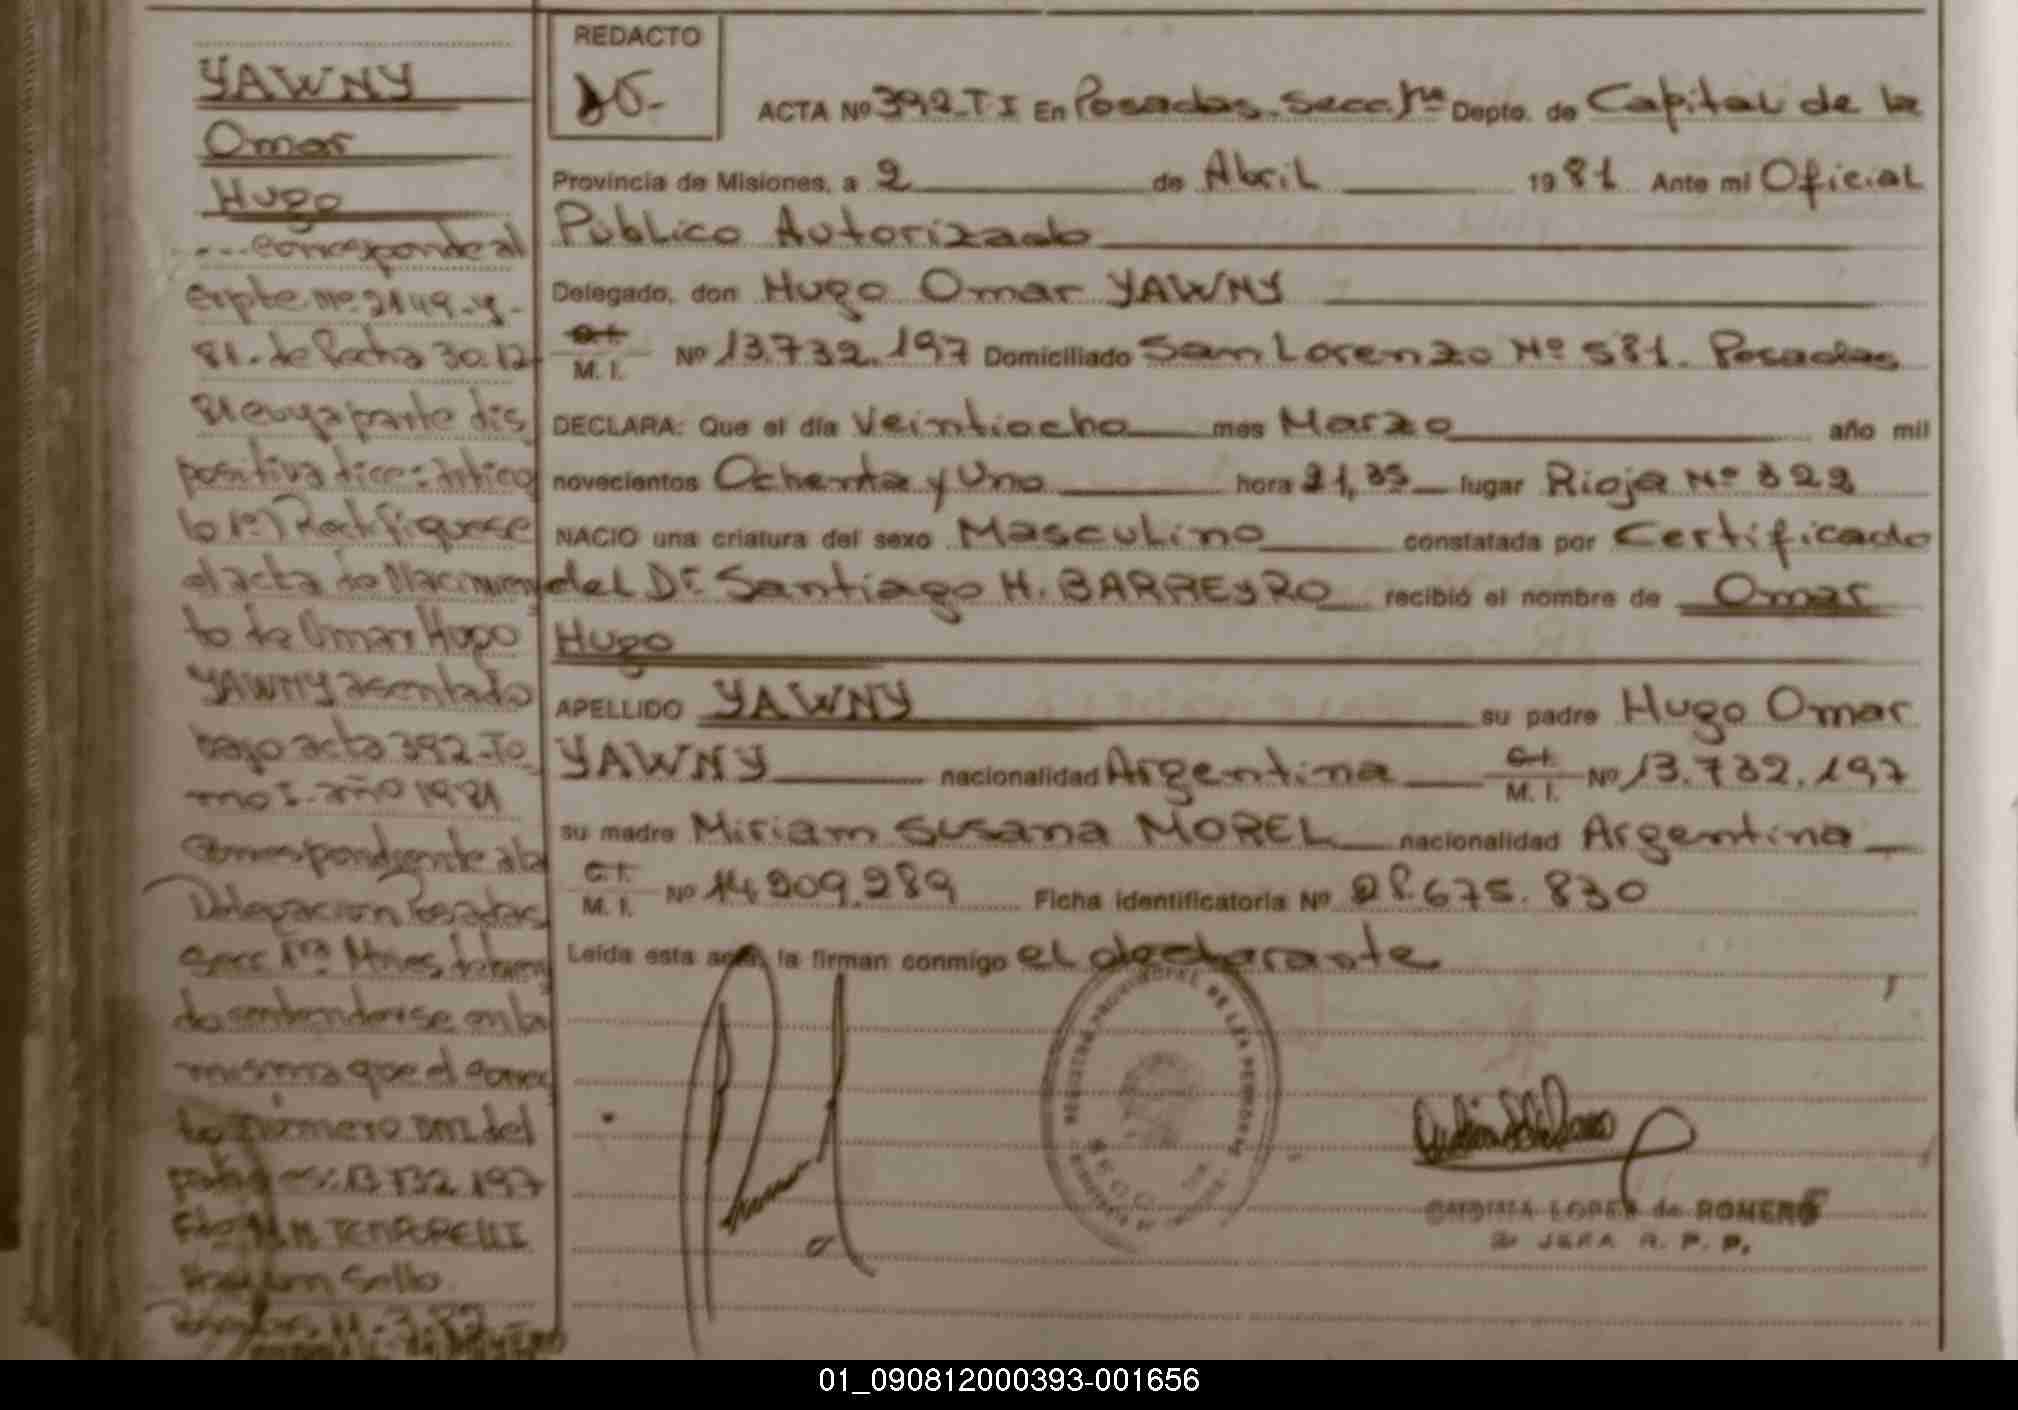 YAWNY
Omar
Hugo
...corresponde al
expte nº 2149-y-
81. de fecha 30.12
81 cuya parte dis
positiva dice: Artícu
lo 1º) Rectifíquese
el acta de Nacimien
to de Omar Hugo
YAWNY asentado
bajo acta 392-To
mo I. año 1981
correspondiente a la
Delegacion Posadas
Secc 1ra Mnes, debien
do entenderse en la
misma que el correc
to número DNI del
padre es: 13.732.197
Fdo M.M. TEMPORELLI
Hay un Sello
Posadas, 11-3-82
REDACTO
ACTA Nº 392-T I En Posadas. Secc 1ra Depto. de Capital de la
Provincia de Misiones, a 2 de Abril 1981 Ante mí Oficial
Público Autorizado
Delegado, don Hugo Omar YAWNY
C.I.
M. I. Nº 13.732.197 Domiciliado San Lorenzo Nº 581. Posadas
DECLARA: Que el día Veintiocho mes Marzo año mil
novecientos Ochenta y Uno hora 21,35 lugar Rioja Nº 322
NACIO una criatura del sexo Masculino constatada por Certificado
del Dr. Santiago H. BARREYRO recibió el nombre de Omar
Hugo
APELLIDO YAWNY su padre Hugo Omar
YAWNY nacionalidad Argentina C.I. M. I. Nº 13.732.197
su madre Miriam Susana MOREL nacionalidad Argentina
C.I.
M. I. Nº 14.209.289 Ficha identificatoria Nº 28.675.830
Leída esta acta, la firman conmigo el declarante
REGISTRO PROVINCIAL DE LAS PERSONAS
LOPEZ de ROMERO
JEFA R. P. P.
01_090812000393-001656